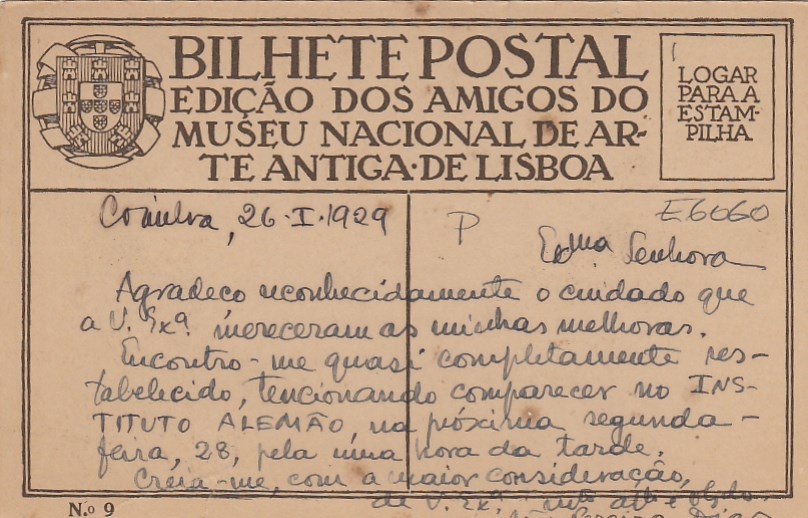 BILHETE POSTAL
EDIÇÃO DOS AMIGOS DO
MUSEU NACIONAL DE AR-
TE ANTIGA·DE LISBOA
LOGAR
PARA A
ESTAM-
PILHA
Coimbra, 26-I-1929
P
E6060
Exma Senhora
Agradeço reconhecidamente o cuidado que
a V. Exª. mereceram as minhas melhoras.
Encontro-me quasi completamente res-
tabelecido, tencionando comparecer no INS-
TITUTO ALEMÃO, na próxima segunda-
feira, 28, pela uma hora da tarde.
Creia-me, com a maior consideração,
de V. Exª. mto attº e obgdo.
N.º 9